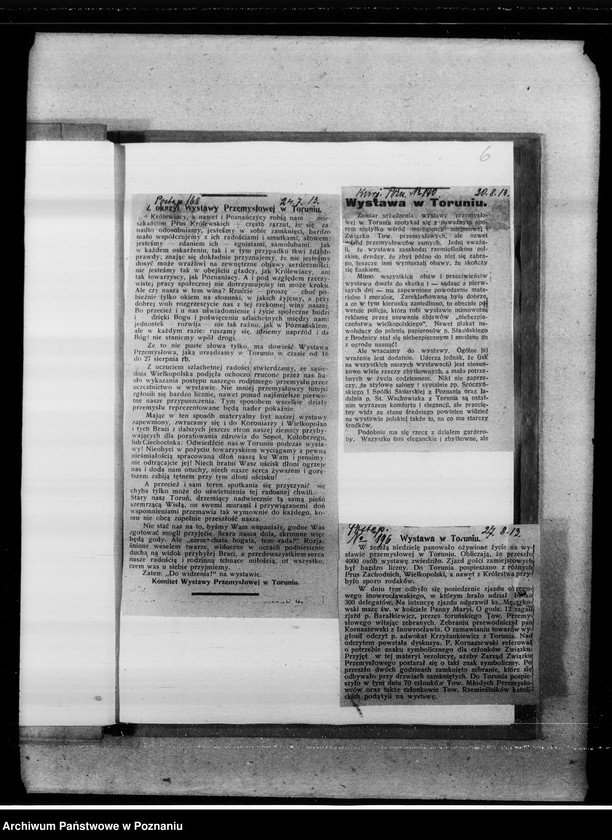 6
Postęp 166 24.7.13.
Z okazyi Wystawy Przemysłowej w Toruniu.
Królewiacy, a nawet i Poznańczycy robią nam mieszkańcom
Prus Królewskich często zarzut, że się zanadto
odosobniamy, jesteśmy w sobie zamknięci, bardzo
mało współczujemy z ich radościami i smutkami, słowem:
jesteśmy zdaniem ich egoistami, samolubami. Jak
w każdem oskarżeniu, tak i w tym przypadku tkwi źdźbło
prawdy; znając się dokładnie przyznajmy, że nie jesteśmy
dosyć może wrażliwi na zewnętrzne objawy serdeczności,
nie jesteśmy tak w obejściu gładcy, jak Królewiacy, ani
tak towarzyscy, jak Poznaniacy. A i pod względem rzeczywistej
pracy społecznej nie dotrzymujemy im może kroku.
Ale czy nasza w tem wina? Rzućcie proszę choć pobieżnie
tylko okiem na stosunki, w jakich żyjemy, a przy
dobrej woli rozgrzeszycie nas z tej rzekomej winy naszej.
Bo przecież i u nas uświadomienie i życie społeczne budzi
dzięki Bogu i poświęceniu szlachetnych między nami
jednostek rozwija nie tak raźno, jak w Poznańskiem,
ale w każdym razie: ruszamy się, idziemy naprzód i da
Bóg! nie staniemy wpół drogi.
Że to nie puste słowa tylko, ma dowieść Wystawa
Przemysłowa, jaką urządzamy w Toruniu w czasie od 16
do 27 sierpnia rb.
Z uczuciem szlachetnej radości stwierdzamy, że sąsiednia
Wielkopolska podjęła ochoczo rzucone przez nas hasło
wykazania postępu naszego rodzimego przemysłu przez
uczestnictwo w wystawie. Nie mniej przemysłowcy tutejsi
zgłosili się bardzo licznie, nawet ponad najśmielsze pierwotne
nasze przypuszczenia. Tym sposobem wszelkie działy
przemysłu reprezentowane będą nader pokaźnie.
Mając w ten sposób materyalny byt naszej wystawy
zapewniony, zwracamy się i do Koroniarzy i Wielkopolan
i tych Braci z dalszych jeszcze stron naszej ziemicy przybywających
dla poratowania zdrowia do Sopot, Kołobrzegu,
lub Ciechocinka: Odwiedźcie nas w Toruniu podczas wystawy!
Nieobyci w pożyciu towarzyskiem wyciągamy z pewną
nieśmiałością spracowaną dłoń naszą ku Wam i prosimy:
nie odtrącajcie jej! Niech bratni Wasz uścisk dłoni ogrzeje
nas i doda nam otuchy, niech nasze serca żywszem i gorętszem
zabiją tętnem przy tym dłoni uścisku!
A przecież i sam teren spotkania się przyczynić się
chyba tylko może do uświetnienia tej radosnej chwili.
Stary nasz Toruń, drzemiący nadwiecznie tą samą pieśń
szemrzącą Wisłą, on swemi murami i przywiązanemi doń
wspomnieniami przemawia tak wymownie do każdego, komu
nie obcą zupełnie przeszłość nasza.
Nie stać nas na to, byśmy Wam wspaniałe, godne Was
zgotować mogli przyjęcie. Szara nasza dola, skromne więc
będą gody. Ale „czem chata bogata, tem rada!” Rozjaśnione
weselem twarze, widoczne w oczach podniesienie
ducha na widok przybyłej Braci, a przedewszystkiem serca
nasze radością i rodzinną tchnące miłością, ot wszystko,
czem was u siebie przyjmiemy.
Zatem „Do widzenia!” na wystawie.
Komitet Wystawy Przemysłowej w Toruniu.
Kuryer Pozn. No 190 20.8.13.
Wystawa w Toruniu.
Zamiar urządzenia wystawy przemysłowej
w Toruniu spotykał się z poważnym oporem
nietylko wśród inteligencyi miejscowej i
Związku Tow. przemysłowych, ale nawet
wśród przemysłowców samych. Jedni uważali,
że wystawa zaszkodzi rzemieślnikom polskim,
drudzy, że zbyt późno do niej się zabrano,
jeszcze inni wymuszali obawy, że skończy
się fiaskiem.
Mimo wszystkich obaw i przeciwieństw
wystawa doszła do skutku i sądząc z pierwszych
dni ma zapewnione powodzenie materialne
i moralne. Zareklamowaną była dobrze,
a co w tym kierunku zaniedbano, to obecnie powetuje
policja, która robi wystawie mimowolną
reklamę przez usuwanie objawów „niebezpieczeństwa
wielkopolskiego”. Nawet plakat nawołujący
do palenia papierosów p. Stasińskiego
z Brodnicy stał się niebezpiecznym i smolano go
z ogrodu usunąć!
Ale wracajmy do wystawy. Ogólne jej
wrażenie jest dodatnie. Uderza jednak, że (jak
na wszystkich naszych wystawach) jest stosunkowo
wiele rzeczy zbytkownych, a mało potrzebnych
w życiu codziennem. Nikt nie zaprzeczy,
że stylowe salony i sypialnie pp. Soroczyńskiego
i Spółki Stolarskiej z Poznania oraz jadalnia
p. St. Wachowiaka z Torunia są ostatnim
wyrazem komfortu i elegancyi, ale przeciętny
widz ze stanu średniego powinien widzieć
na wystawie polskiej także to, na co mu starczy
środków.
Podobnie ma się rzecz z działem garderoby.
Wszystko tam eleganckie i zbytkowne, ale
Postęp. No 196 27.8.13.
Wystawa w Toruniu.
W zeszłą niedzielę panowało ożywione życie na wystawie
przemysłowej w Toruniu. Obliczają, że przeszło
4000 osób wystawę zwiedziło. Zjazd gości zamiejscowych
był bardzo liczny. Do Torunia pospieszano z różnych
Prus Zachodnich, Wielkopolski, a nawet z Królestwa przybyło
sporo rodaków.
W dniu tym odbyło się posiedzenie zjazdu okręgowego
inowrocławskiego, w którym brało udział blisko
300 delegatów. Na intencyę zjazdu odprawił ks. Mączykowski
mszę św. w kościele Panny Maryi. O godz. 12 zagaił
zjazd p. Baralkiewicz, prezes toruńskiego Tow. Przemysłowego
witając zebranych. Zebraniu przewodniczył pan
Kornaszewski z Inowrocławia. O zamawianiu towarów wygłosił
odczyt p. adwokat Krzyżankiewicz z Torunia. Nad
odczytem powstała dyskusya. P. Kornaszewski referował
o potrzebie znaku symbolicznego dla członków Związku:
Przyjęto w tej materyi rezolucyę, ażeby Zarząd Związku
Przemysłowego postarał się o taki znak symboliczny. Po
przeszło dwóch godzinach zamknięto zebranie, które się
odbywało przy drzwiach zamkniętych. Do Torunia pospieszyło
w tym dniu 70 członków Tow. Młodych Przemysłowców
oraz także członkowie Tow. Rzemieślników katolickich
podążyli na wystawę.
Archiwum Państwowe w Poznaniu